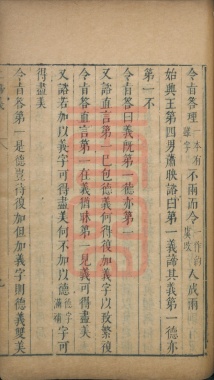 令旨答理一本有雖字不兩而令一作約廣改人成兩
始興王第四男蕭映諮曰第一義諦其義第一德亦
第一不
令旨答曰義既第一德亦第一
又諮直言第一已包德義何得復加義字以致繁複
令旨答直言第一在義猶昧第一見義可得盡美
又諮若加以義字可得盡美何不加以德德字廣補字可
得盡美
令旨答第一是德豈待復加但加義字則德義雙美